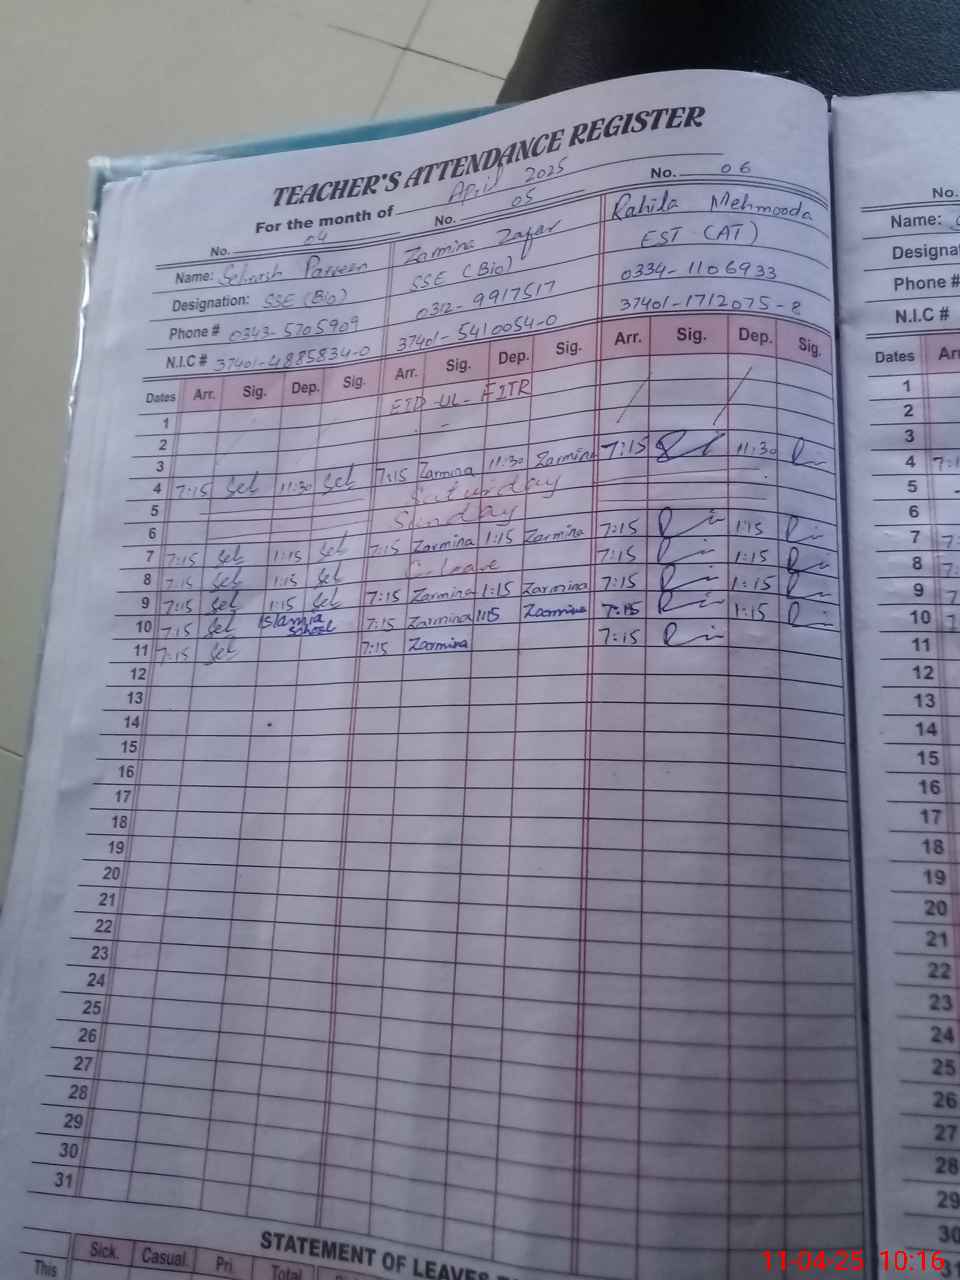 TEACHER'S ATTENDANCE REGISTER
For the month of April 2025
No. 04 No. 05 No. 06
Name: Sehrash Parveen Zarmina Zafar Rahila Mehmooda
Designation: SSE (Bio) SSE (Bio) EST (AT)
Phone # 0343-5705909 0312-9917517 0334-1106933
N.I.C # 37401-4885834-0 37401-5410054-0 37401-1712075-8
Dates Arr. Sig. Dep. Sig. Arr. Sig. Dep. Sig. Arr. Sig. Dep. Sig.
1 EID-UL-FITR
2
3
4 7:15 Seh 11:30 Seh 7:15 Zarmina 11:30 Zarmina 7:15 11:30
5 Saturday
6 Sunday
7 7:15 Seh 1:15 Seh 7:15 Zarmina 1:15 Zarmina 7:15 1:15
8 7:15 Seh 1:15 Seh C. leave 7:15 1:15
9 7:15 Seh 1:15 Seh 7:15 Zarmina 1:15 Zarmina 7:15 1:15
10 7:15 Seh Islamia School 7:15 Zarmina 1:15 Zarmina 7:15 1:15
11 7:15 Seh 7:15 Zarmina 7:15
12
13
14
15
16
17
18
19
20
21
22
23
24
25
26
27
28
29
30
31
STATEMENT OF LEAVES
This Sick. Casual. Pri. Total
No.
Name:
Designa
Phone #
N.I.C #
Dates Arr
1
2
3
4 7:1
5
6
7 7:
8 7:
9 7:
10
11
12
13
14
15
16
17
18
19
20
21
22
23
24
25
26
27
28
29
30
31
11-04-25 10:16